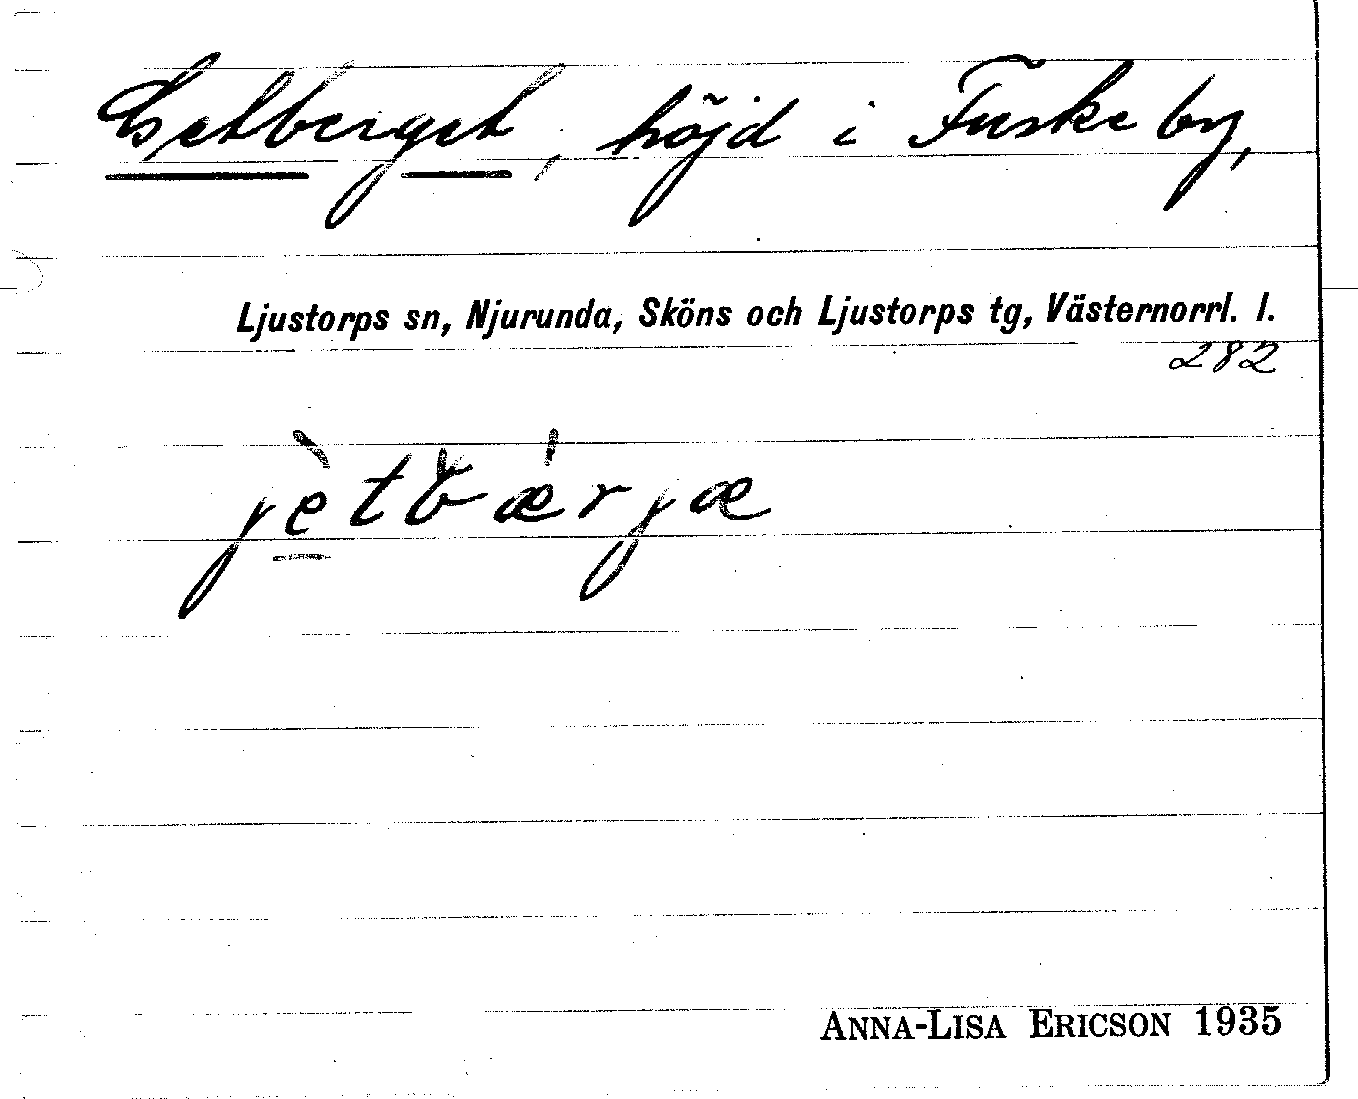 Getberget, höjd i Fuske by,
Ljustorps sn, Njurunda, Sköns och Ljustorps tg, Västernorrl. l.
282
jètbá̀rjæ
ANNA-LISA ERICSON 1935